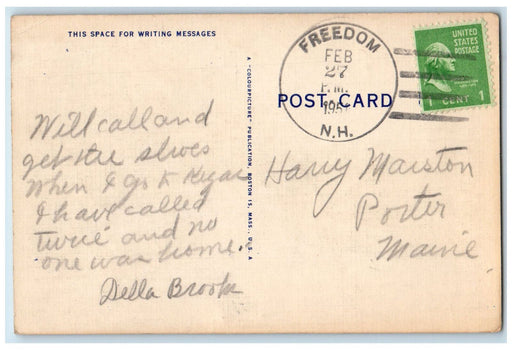 THIS SPACE FOR WRITING MESSAGES
Will call and
get the shoes
when I go to
I have called
twice and no
one was home.
Della Brooks
A "COLOURPICTURE" PUBLICATION, BOSTON 15, MASS., U.S.A.
FREEDOM
FEB
27
P.M.
N.H.
UNITED
STATES
POSTAGE
1 CENT 1
POST CARD
Harry Marston
Porter
Maine